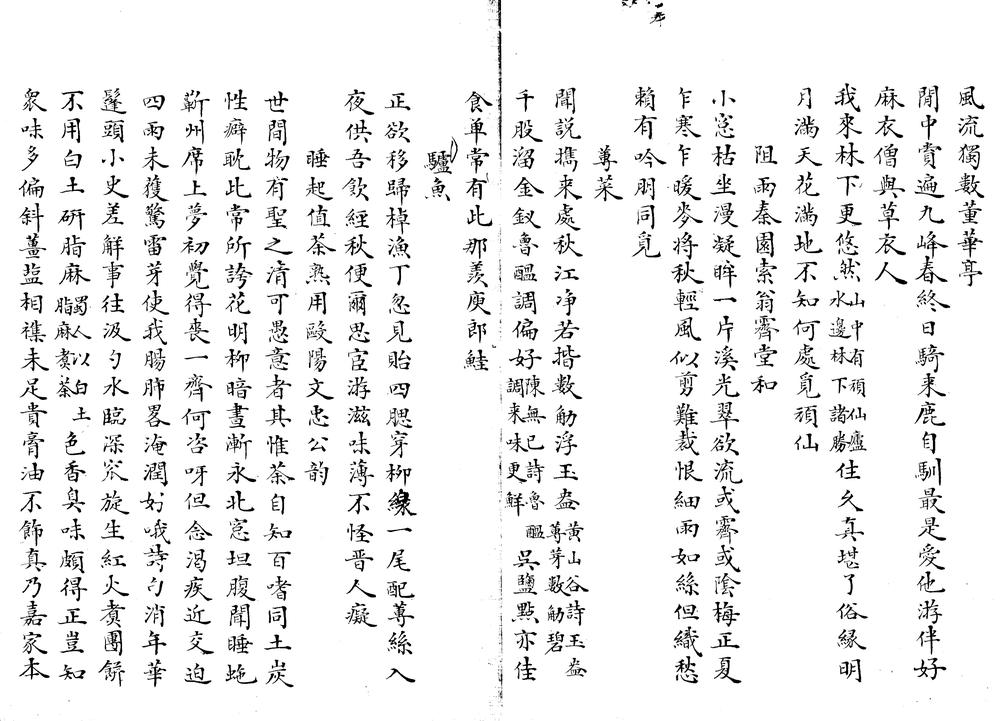 風流獨數董華亭
閒中賞遍九峰春終日騎來鹿自馴最是愛他游伴好
麻衣僧與草衣人
我來林下更悠然山中有頑仙廬水邊林下諸勝住久真堪了俗緣明
月滿天花滿地不知何處覓頑仙
阻雨秦園索翁霽堂和
小窓枯坐漫凝眸一片溪光翠欲流或霽或陰梅正夏
乍寒乍暖麥將秋輕風似剪難裁恨細雨如絲但織愁
賴有吟朋同覓
蓴菜
聞説攜來處秋江净若揩數觔浮玉盎黃山谷詩玉盎蓴芽數觔碧
千股溜金釵魯醞調偏好陳無已詩魯醞調來味更鮮吳鹽點亦佳
食单常有此那羨庾郎鮭
驢魚
正欲移歸棹漁丁忽見貽四腮穿柳綠一尾配蓴絲入
夜供吾飲經秋便爾思宦游滋味薄不怪晋人癡
睡起值茶熟用歐陽文忠公韵
世間物有聖之清可愚意者其惟茶自知百嗜同土炭
性癖耽此常所誇花明柳暗晝漸永北窓坦腹聞睡虵
蘄州席上夢初覺得喪一齊何咨呀但念渴疾近交迫
四雨未獲驚雷芽使我腸肺畧淹潤好哦詩句消年華
鬔頭小史差解事往汲勺水臨深㲼旋生紅火煑團餅
不用白土研脂麻蜀人以白土脂麻煑茶色香臭味頗得正豈知
衆味多偏斜薑盐相襍未足貴膏油不飾真乃嘉家本